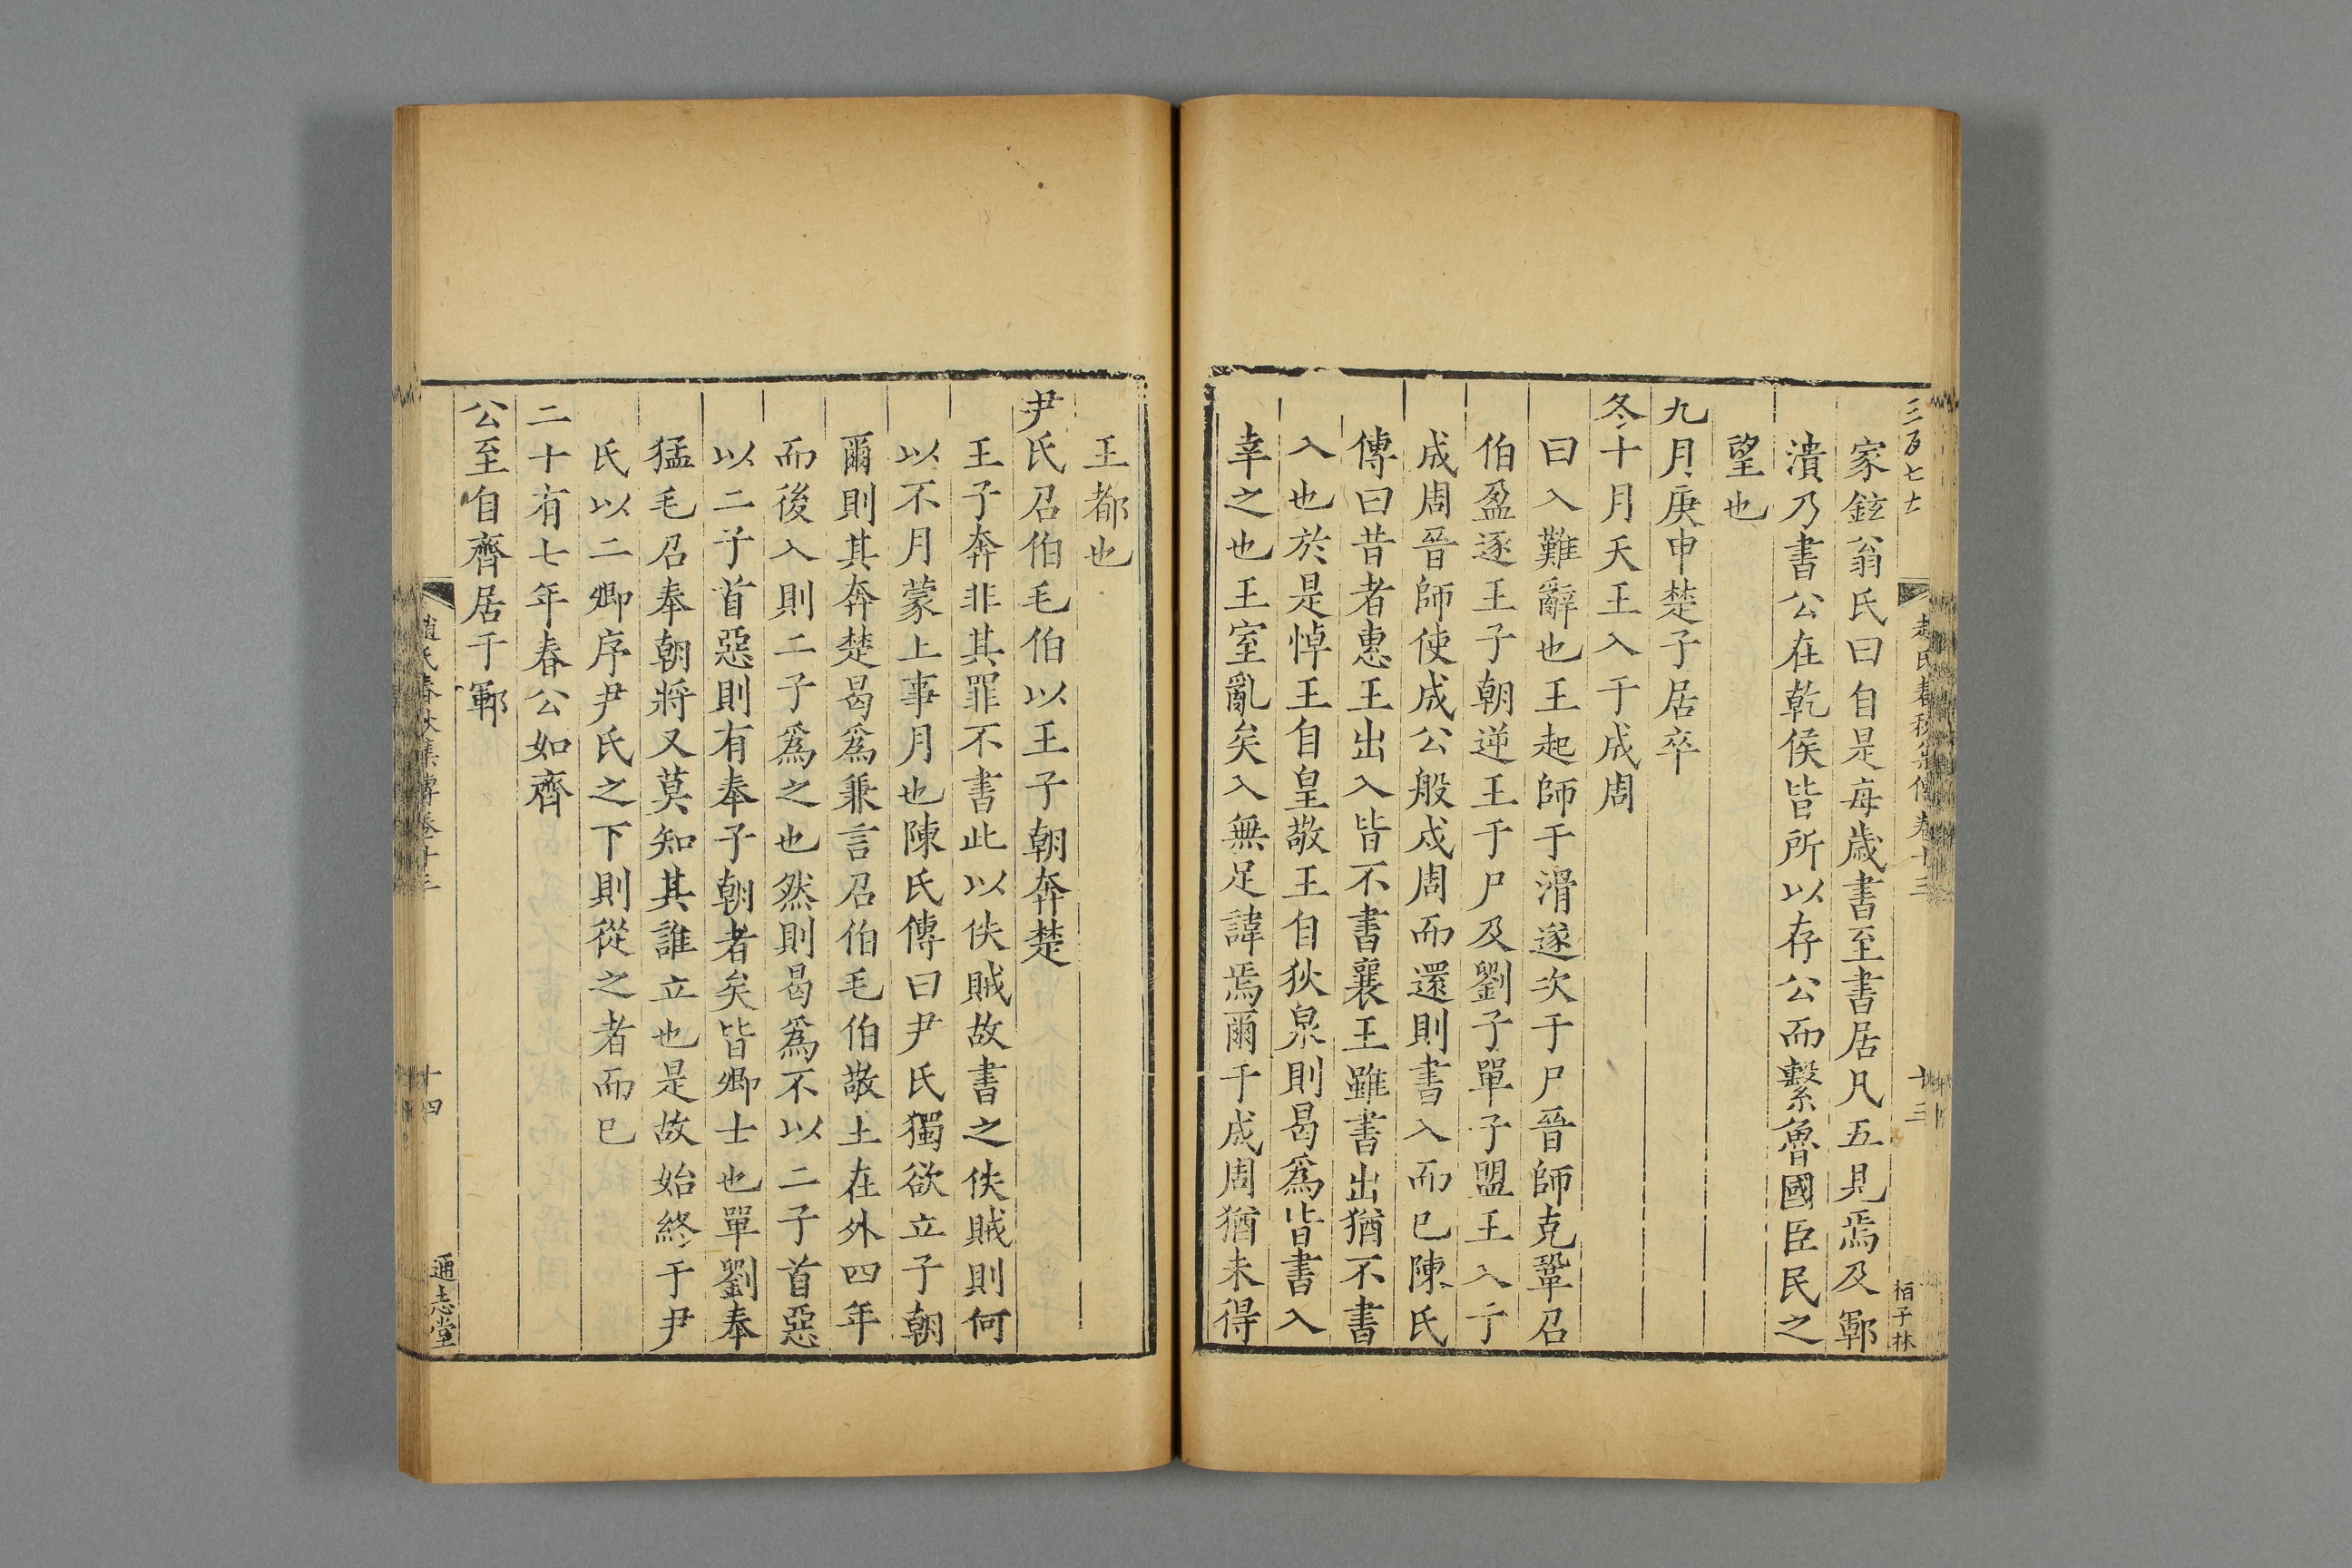 三百七十
趙氏春秋集傳卷十三
十三
栢子林
家鉉翁氏曰自是每歳書至書居凡五見焉及鄆
潰乃書公在乾侯皆所以存公而繫魯國臣民之
望也
九月庚申楚子居卒
冬十月天王入于成周
曰入難辭也王起師于滑遂次于尸晉師克鞏召
伯盈逐王子朝逆王于尸及劉子單子盟王入于
成周晉師使成公般戍周而還則書入而已陳氏
傳曰昔者惠王出入皆不書襄王雖書出猶不書
入也於是悼王自皇敬王自狄泉則曷爲皆書入
幸之也王室亂矣入無足諱焉爾于成周猶未得
王都也
尹氏召伯毛伯以王子朝奔楚
王子奔非其罪不書此以佚賊故書之佚賊則何
以不月蒙上事月也陳氏傳曰尹氏獨欲立子朝
爾則其奔楚曷爲兼言召伯毛伯敬王在外四年
而後入則二子爲之也然則曷爲不以二子首惡
以二子首惡則有奉子朝者矣皆卿士也單劉奉
猛毛召奉朝將又莫知其誰立也是故始終于尹
氏以二卿序尹氏之下則從之者而已
二十有七年春公如齊
公至自齊居于鄆
趙氏春秋集傳卷十三
十四
通志堂